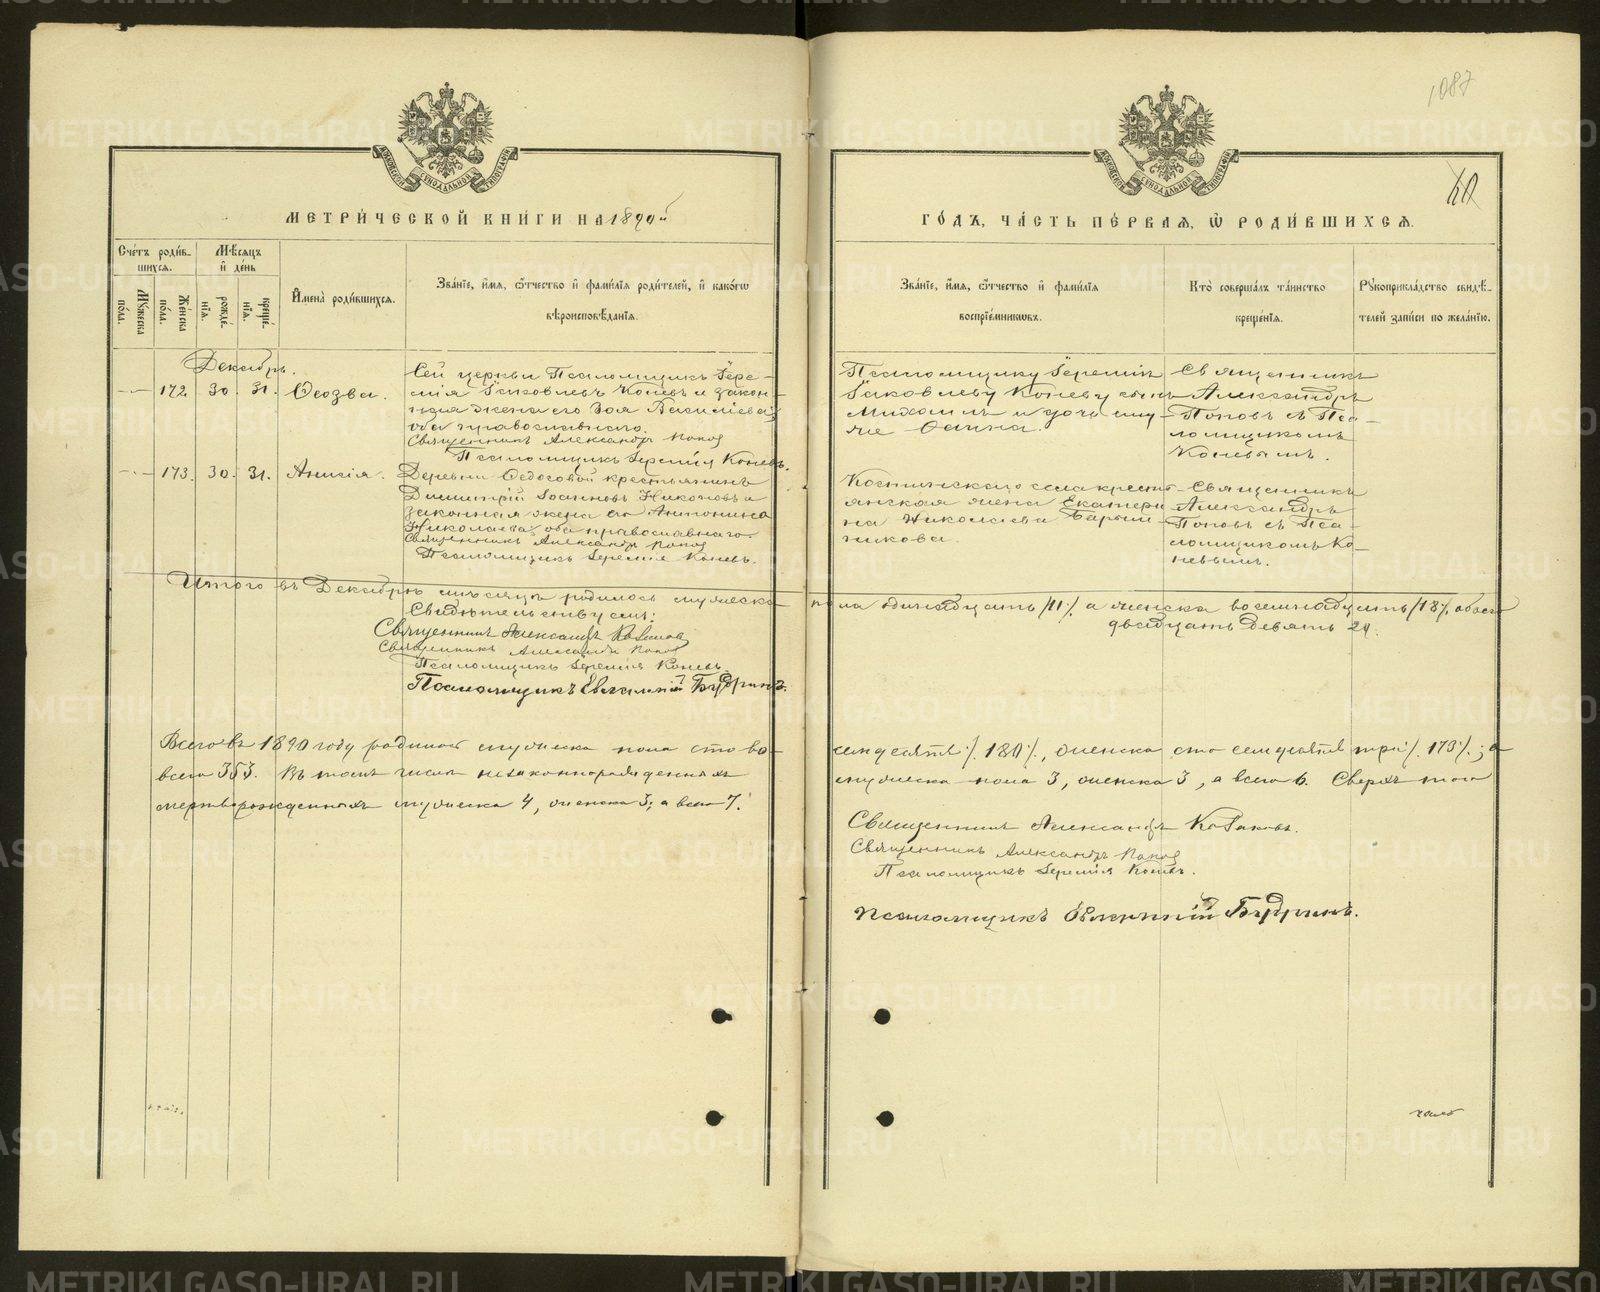 1087
МОСКОВСКОЙ СѴНОДАЛЬНОЙ ТИПОГРАФІИ
МОСКОВСКОЙ СѴНОДАЛЬНОЙ ТИПОГРАФІИ
МЕТРИ́ЧЕСКОЙ КНИ́ГИ НА 1890й
ГО́ДЪ, ЧА́СТЬ ПЕ́РВАѦ, Ѡ҆ РОДИ́ВШИХСѦ.
Сче́тъ роди́в-
шихсѧ.
Мѣ́сѧцъ
и҆ де́нь
Мꙋжеска по́ла.
Же́нска по́ла.
рожде́нїѧ.
креще́нїѧ.
И҆мена̀ роди́вшихсѧ.
Зва́нїе, и҆́мѧ, ѻ҆́тчество и҆ фами́лїѧ роди́телей, и҆ како́гѡ
вѣроисповѣ́данїѧ.
Зва́нїе, и҆́мѧ, ѻ҆́тчество и҆ фами́лїѧ
воспрїе́мникѡвъ.
Кто̀ соверша́лъ та́инство
креще́нїѧ.
Рꙋкоприкла́дство свидѣ́-
телей за́писи по жела́нїю.
Декабрь.
172 30. 31. Ѳеозва.
Сей церкви Псаломщикъ Іере-
мія Іаковлевъ Коневъ и закон-
ная жена его Зоя Васильева,
оба православнаго.
Священникъ Александръ Попов
Псаломщикъ Іеремія Коневъ.
Псаломщику Іереміи
Іаковлеву Коневу сынъ
Михаилъ и дочь ему-
же
Священникъ
Александръ
Поповъ съ Пса-
ломщикомъ
Коневымъ.
173. 30. 31. Анисія.
Деревни Ѳедосовой крестьянинъ
Димитрій Іоанновъ Никоновъ и
законная жена его Антонина
Николаева, оба православнаго.
Священникъ Александръ Попов
Псаломщикъ Іеремія Коневъ.
Костинскаго села кресть-
янская жена Екатери-
на Николаева
Священникъ
Александръ
Поповъ съ Пса-
ломщикомъ Ко-
невымъ.
Итого въ Декабрѣ мѣсяцѣ родилось мужеска пола одинадцать /11/. а женска восемнадцать /18/, обоего
двадцать девять 29.
Свидѣтельствуемъ:
Священникъ Александръ
Священникъ Александръ Попов
Псаломщикъ Іеремія Коневъ.
Псаломщикъ Евгеній Будринъ.
Всего въ 1890 году родилось мужеска пола сто во-
семдесятъ /. 180 /., женска сто семдесятъ три /. 173 /.; а
всего 353. Въ томъ числѣ незаконнорожденныхъ
мужеска пола 3, женска 3, а всего 6. Сверхъ того
мертворожденныхъ мужеска 4, женска 3; а всего 7.
Священникъ Александръ
Священникъ Александръ Попов
Псаломщикъ Іеремія Коневъ.
Псаломщикъ Евгеній Будринъ.
METRIKI.GASO-URAL.RU